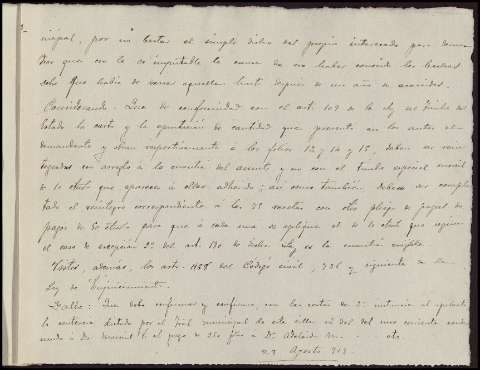 nicipal, por un testa el simple dicho del propio interesado para demos-
trar que no le es imputable la causa de no haber conocido los hechos
sobre que había de versar aquella hasta después de un año de ocurridos.
Considerando: Que de conformidad con el art. 109 de la ley del Timbre del
Estado la carta y la operación de cantidad que presenta en los autos el
demandante y obran respectivamente a los folios 12 y 14 y 15, deben ser rein-
tegrados con arreglo a la cuantía del asunto y no con el timbre especial movil
de 10 cents que aparece a ellos adherido; así como también debe ser comple-
tado el reintegro correspondiente a los 75 con otro pliego de papel de
pagos de 50 cents para que a cada una se aplique el de 10 cents que requiere
el caso de excepción 2º del art. 130 de dicha Ley es la cuantía exigible.
Vistos, además, los arts. del Código civil, 736 y siguiente de la
Ley de Enjuiciamiento.
Fallo: Que debo confirmar y confirmo, con las costas de 2ª instancia al apelante
la sentencia dictada por el Tral municipal de esta villa el del mes corriente conde-
nando a Dn Manuel B. al pago de 260 ptas a Dª Adelaida M. . . . etc.
23 Agosto 913.